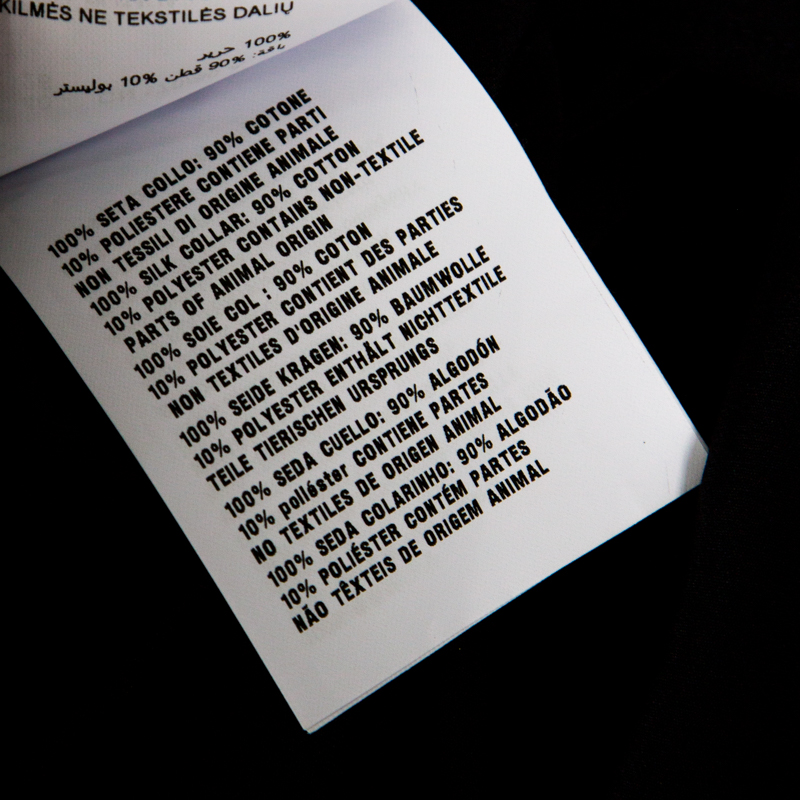 KILMĖS NE TEKSTILĖS DALIŲ
100% حرير
ياقة: 90% قطن 10% بوليستر
100% SETA COLLO: 90% COTONE
10% POLIESTERE CONTIENE PARTI
NON TESSILI DI ORIGINE ANIMALE
100% SILK COLLAR: 90% COTTON
10% POLYESTER CONTAINS NON-TEXTILE
PARTS OF ANIMAL ORIGIN
100% SOIE COL : 90% COTON
10% POLYESTER CONTIENT DES PARTIES
NON TEXTILES D'ORIGINE ANIMALE
100% SEIDE KRAGEN: 90% BAUMWOLLE
10% POLYESTER ENTHÄLT NICHTTEXTILE
TEILE TIERISCHEN URSPRUNGS
100% SEDA CUELLO: 90% ALGODÓN
10% poliéster CONTIENE PARTES
NO TEXTILES DE ORIGEN ANIMAL
100% SEDA COLARINHO: 90% ALGODÃO
10% POLIÉSTER CONTÉM PARTES
NÃO TÊXTEIS DE ORIGEM ANIMAL